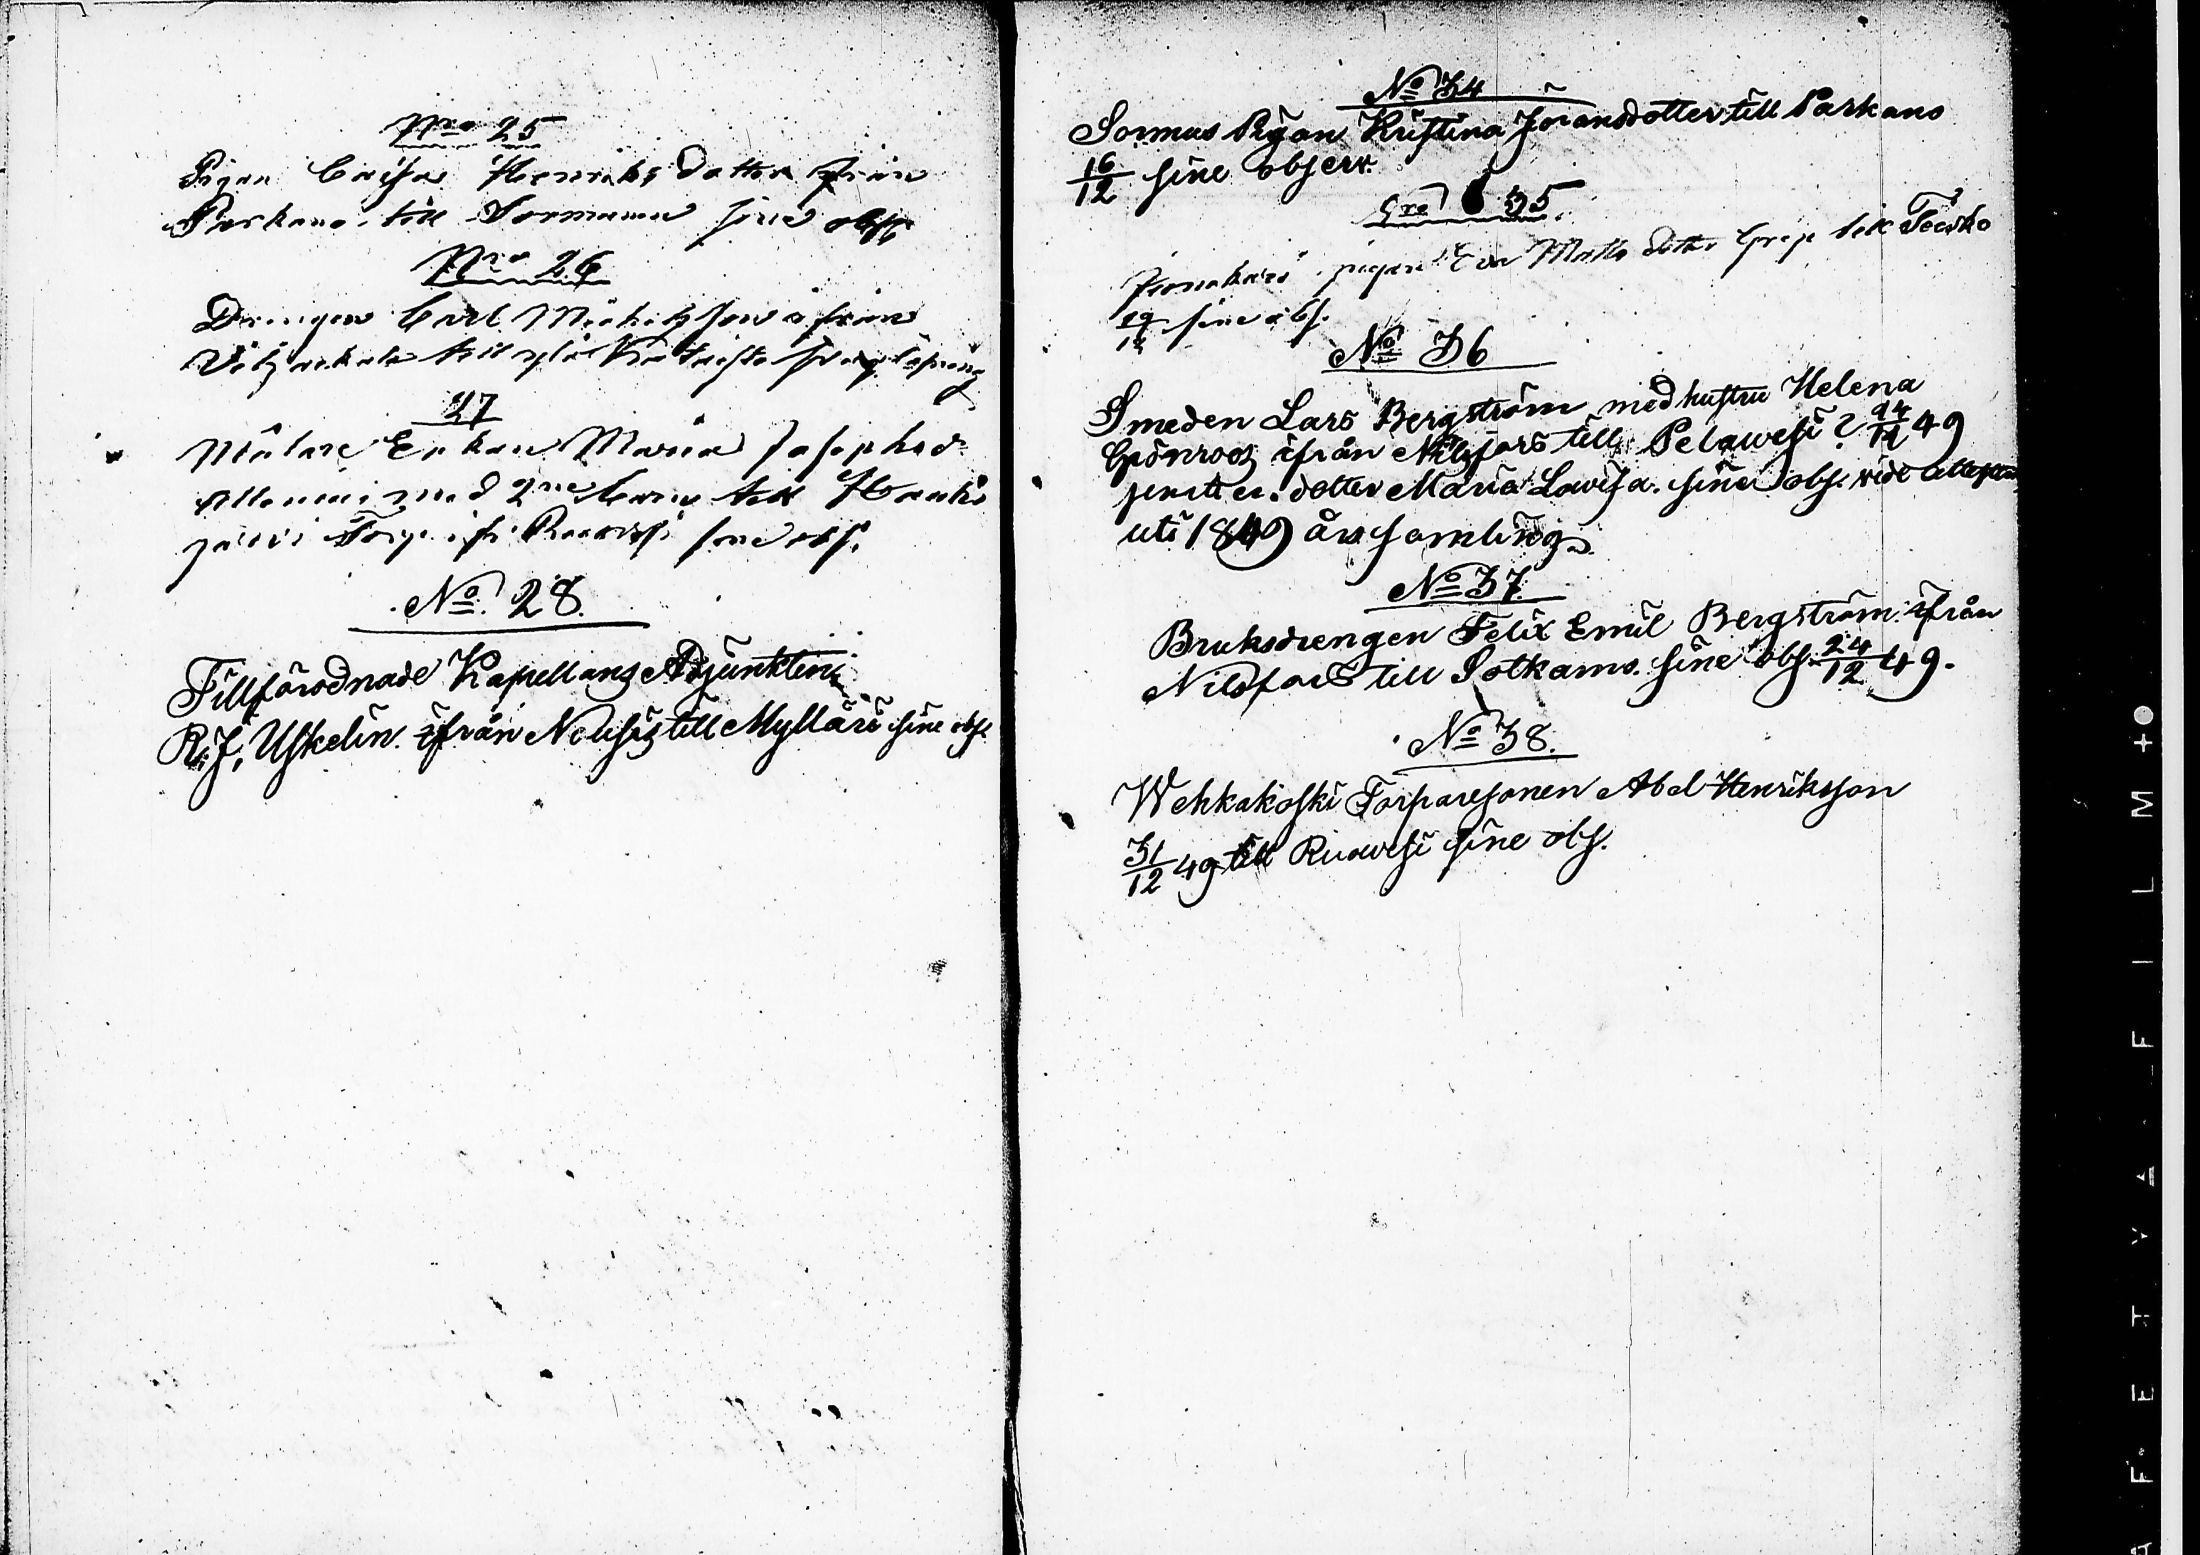 Nro 25
Pigan Caisa Henriks dotter från
Parkano till Sormunen sine obs
Nro 26
Drengen Carl Michelsson ifrån
till
27
Målare Enkan Maria Josephsd:
med 2ne barn till Hauki
järvi Torp ifr. Ruovesi sine obs.
No. 28.
Tillförodnade Kapellans Adjunkten
R. J. Uskelin. ifrån Nousis till Mylläri sine obs.
No 34
Sormus Pigan Kristina Joransdotter till Parkano
16/12 sine observ.
Nro 35.
pigan Eva Matts dotter till Teisko
sine obs.
No 36
Smeden Lars Bergström med hustru Helena
Grönroos ifrån Nilsfors till Pelawesi d 24/12 49
samt en dotter Maria Lowisa. sine obs. vide attesten
uti 1849 års samling.
No 37.
Bruksdrengen Felix Emil Bergström ifrån
Nilsfors till Sotkamo. sine obs. 24/12 49.
No 38.
Wehkakoski Torparesonen Abel Henriksson
31/12 49 till Ruowesi sine obs.
A F E T Y A - F I L M